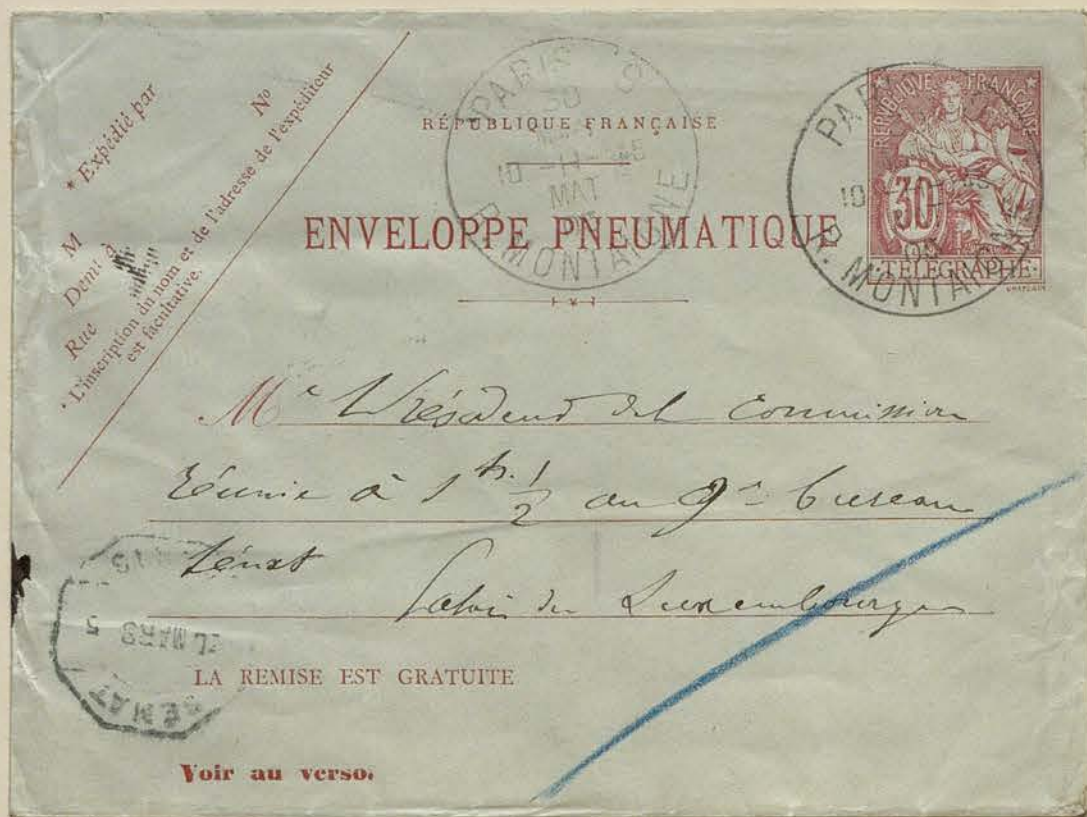 * Expédié par
M
Demt à
Rue N°
* L'inscription du nom et de l'adresse de l'expéditeur
est facultative.
PARIS
30
10 - 11
MAT
R. MONTAIGNE
RÉPUBLIQUE FRANÇAISE
ENVELOPPE PNEUMATIQUE
REPUBLIQUE FRANÇAISE
30
TELEGRAPHE
CHAPLAIN
PARIS
10
R. MONTAIGNE
Mr le Président de la Commission
réunie à 1 h. 1/2 au 9e bureau
Sénat
Palais du Luxembourg
SENAT
MARS 5
LA REMISE EST GRATUITE
Voir au verso.